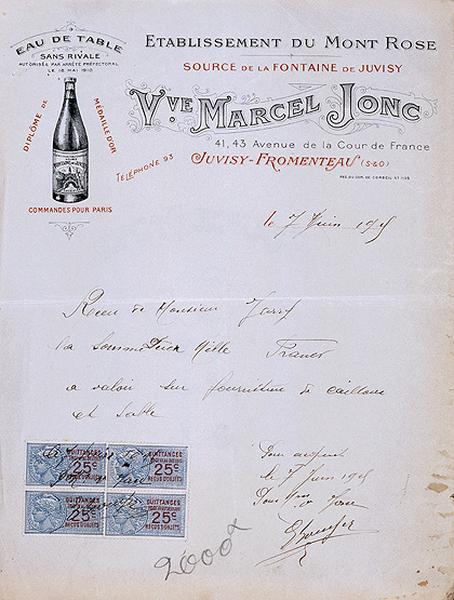 EAU DE TABLE
SANS RIVALE
AUTORISÉE PAR ARRÊTÉ PRÉFECTORAL
LE 18 MAI 1910
DIPLÔME DE
MÉDAILLE D'OR
COMMANDES POUR PARIS
ETABLISSEMENT DU MONT ROSE
SOURCE DE LA FONTAINE DE JUVISY
VVE MARCEL JONC
41, 43 Avenue de la Cour de France
TÉLÉPHONE 93
JUVISY-FROMENTEAU (S&O)
REG. DU COM. DE CORBEIL Nº 1135
le 7 Juin
Reçu de Monsieur
la somme Deux Mille Francs
a valoir sur fourniture de cailloux
et sable
QUITTANCES
25c
REÇUS D'OBJETS
QUITTANCES
25c
REÇUS D'OBJETS
QUITTANCES
25c
REÇUS D'OBJETS
QUITTANCES
25c
REÇUS D'OBJETS
Pour acquit
le 7 Juin
2000